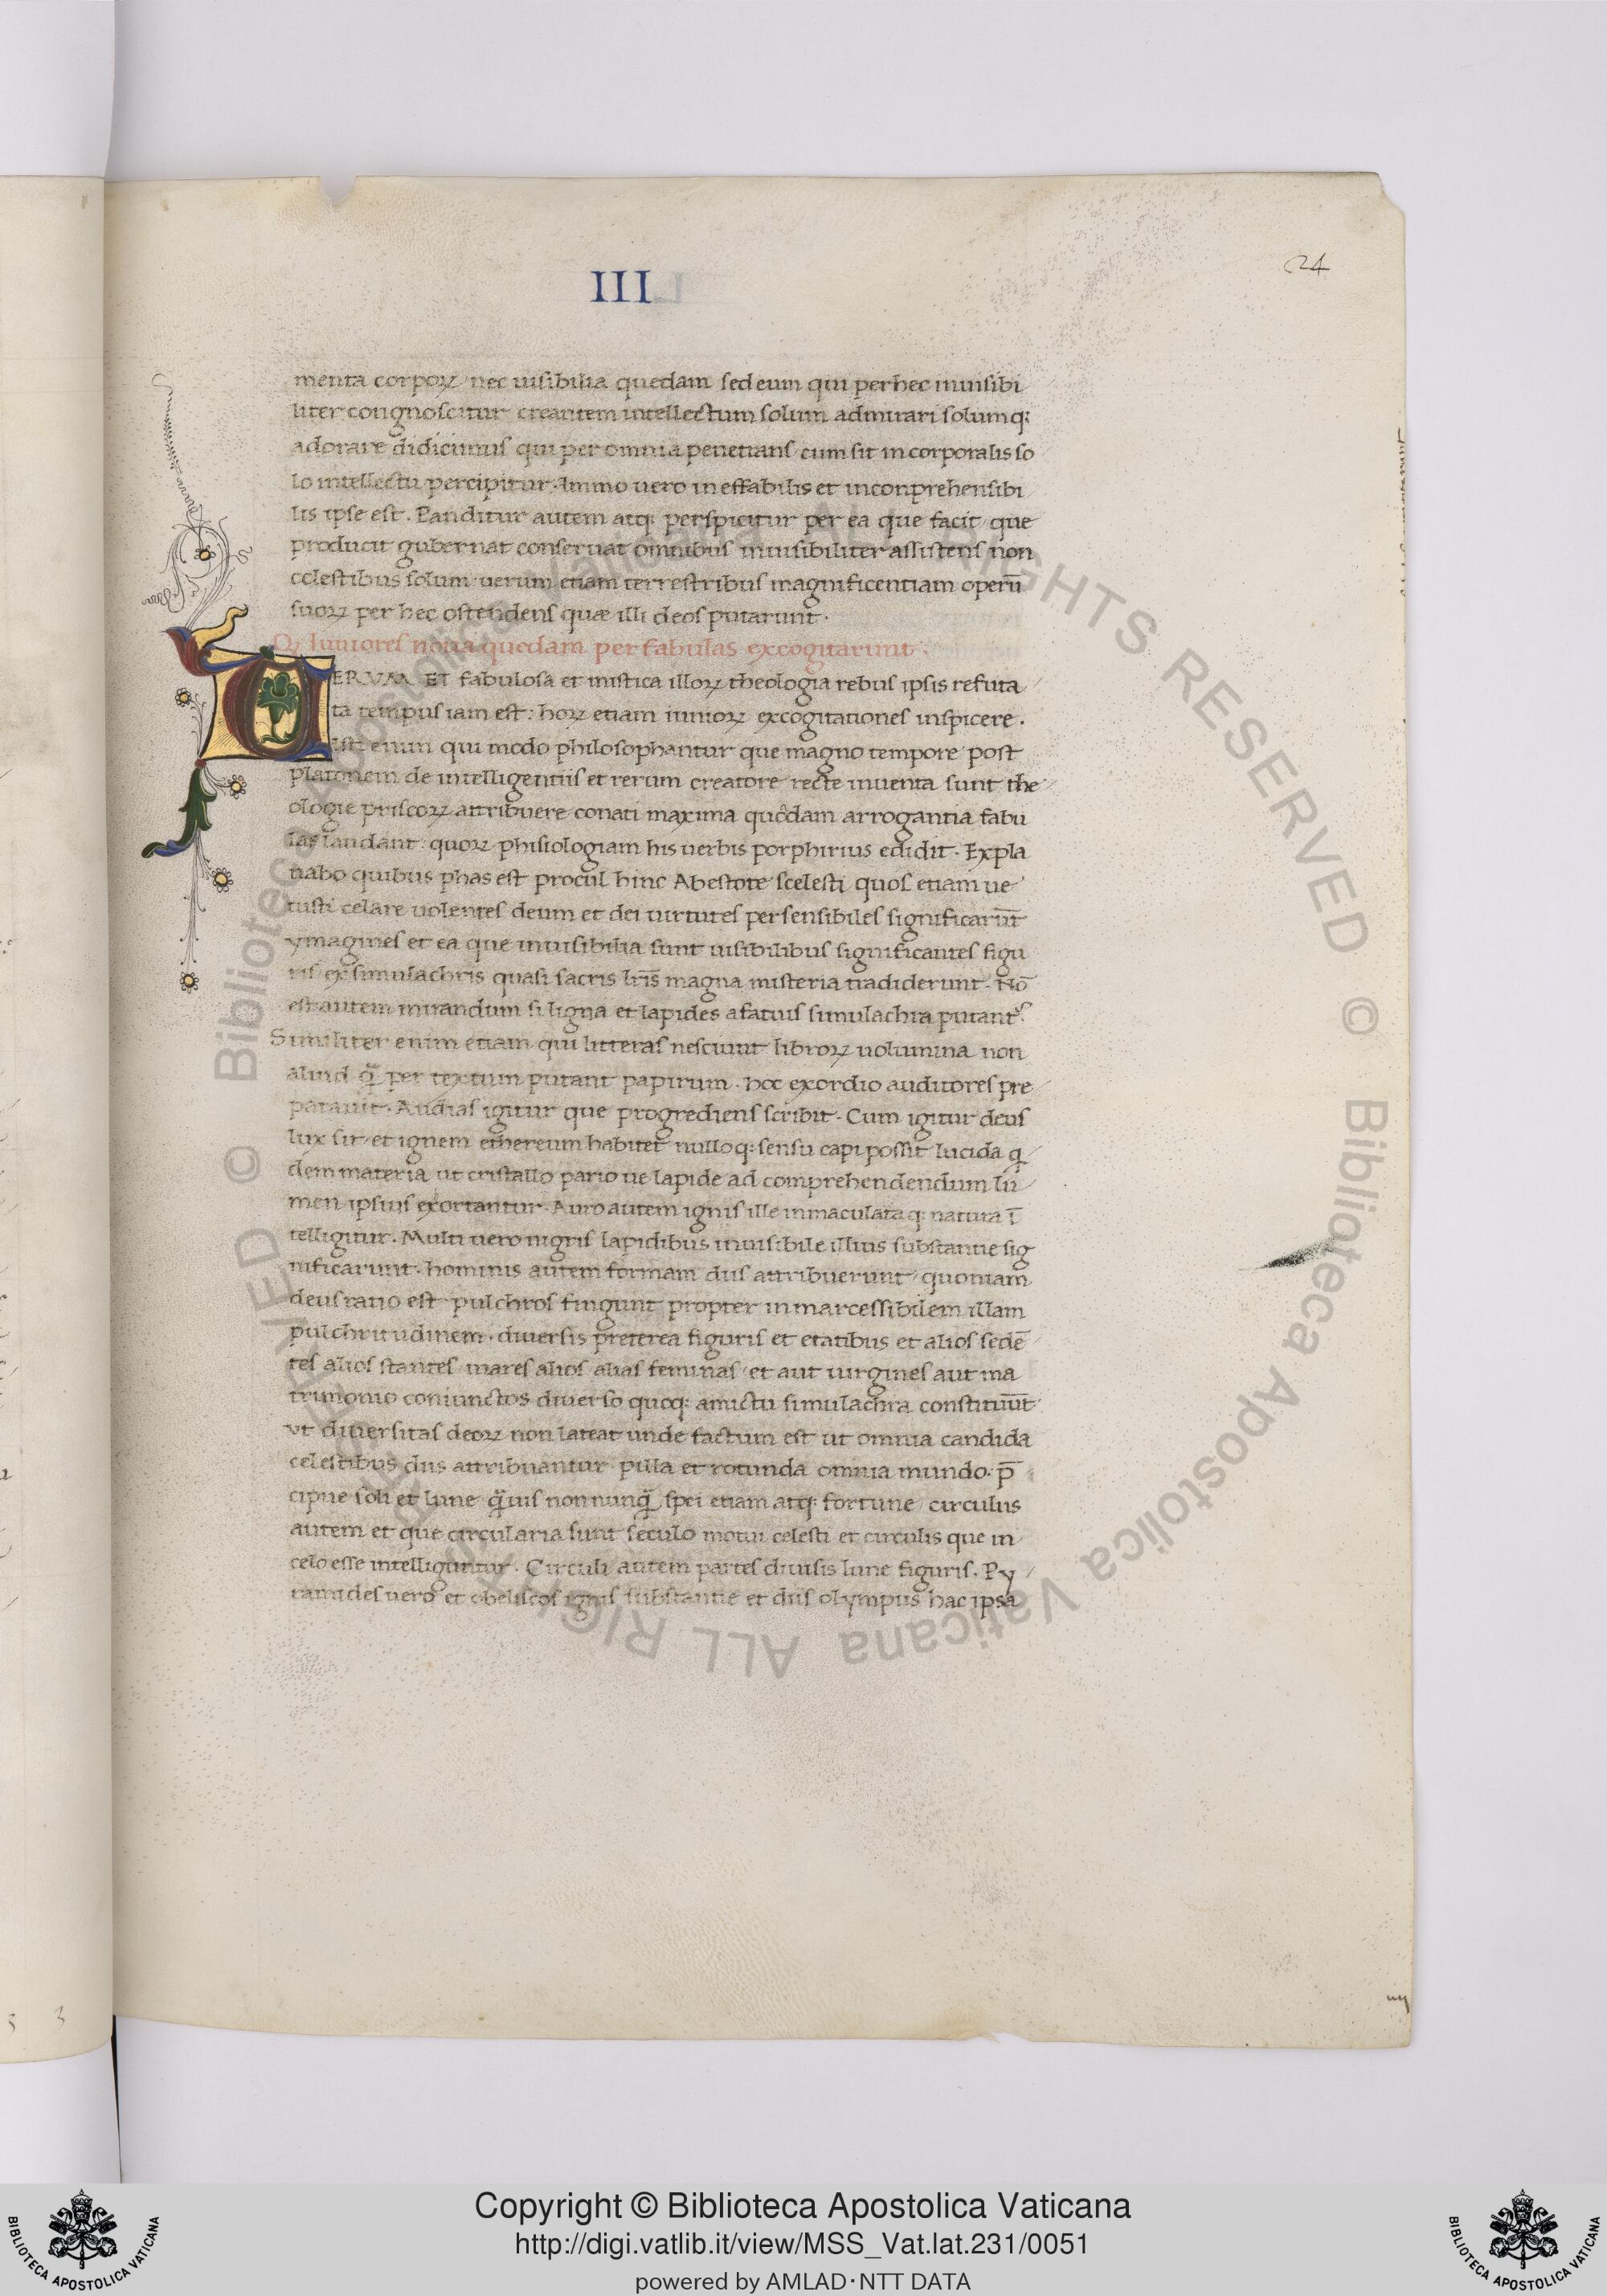 III
24
menta corporꝝ nec uisibilia quedam sed eum qui per hec inuisibi
liter congnoscitur creantem intellectum solum admirari solumq;
adorare didicimus qui per omnia penetrans cum sit incorporalis so
lo intellectu percipitur. Immo uero ineffabilis et inconprehensibi
lis ipse est. Panditur autem atq; perspicitur per ea que facit que
producit gubernat conseruat omnibus inuisibiliter assistens non
celestibus solum uerum etiam terrestribus magnificentiam operū
suorꝝ per hec ostendens quæ illi deos putarunt.
Iuniores noua quedam per fabulas excogitarunt.
VERVM ET fabulosa et mistica illorꝝ theologia rebus ipsis refuta
ta tempus iam est: horꝝ etiam iuniorꝝ excogitationes inspicere.
Isti enim qui modo philosophantur que magno tempore post
platonem de intelligentiis et rerum creatore recte inuenta sunt the
ologie priscorꝝ attribuere conati maxima quadam arrogantia fabu
las laudant: quorꝝ phisiologiam his uerbis porphirius edidit. Expla
nabo quibus phas est procul hinc Abestote scelesti quos etiam ue
tusti celare uolentes deum et dei uirtutes per sensibiles significarūt
ymagines et ea que inuisibilia sunt uisibilibus significantes figu
ris ex simulachris quasi sacris lr̄is magna misteria tradiderunt. Nō
est autem mirandum si ligna et lapides a fatuis simulachra putant᷑.
Similiter enim etiam qui litteras nesciunt librorꝝ uolumina non
aliud q̄ per textum putant papirum. hoc exordio auditores pre
parauit. Audias igitur que progrediens scribit. Cum igitur deus
lux sit et ignem ethereum habitet nulloq; sensu capi possit lucida q
dem materia ut cristallo pario ue lapide ad comprehendendum lu
men ipsius exortantur. Auro autem ignis ille inmaculataq; natura ī
telligitur. Multi uero nigris lapidibus inuisibile illius substantie sig
nificarunt. hominis autem formam diis attribuerunt quoniam
deus ratio est pulchros fingunt propter inmarcessibilem illam
pulchritudinem. diuersis preterea figuris et etatibus et alios sedē
tes alios stantes mares alios alias feminas et aut uirgines aut ma
trimonio coniunctos diuerso quoq; amictu simulachra constituūt
vt diuersitas deorꝝ non lateat unde factum est ut omnia candida
celestibus diis attribuantur pilla et rotunda omnia mundo. p̄
cipue soli et lune q̄uis nonnunq̄ spei etiam atq; fortune circulus
autem et que circularia sunt seculo motui celesti et circulis que in
celo esse intelliguntur. Circuli autem partes diuisis lune figuris. Py
ramides uero et obeliscos ignis substantie et diis olympus hac ipsa
Copyright © Biblioteca Apostolica Vaticana
http://digi.vatlib.it/view/MSS_Vat.lat.231/0051
powered by AMLAD·NTT DATA